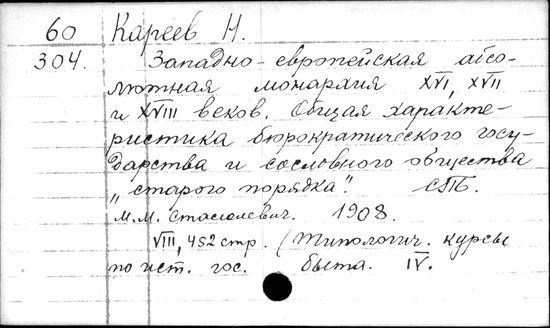 60 Кареев Н.
304. Западно-европейская абсо-
лютная монархия XVI, XVII
и XVIII веков. Общая характе-
ристика бюрократического госу-
дарства и сословного общества
„старого порядка". СПб.
М.М. Стасюлевич. 1908.
VIII, 452 стр. (Типологич. курсы
по ист. гос. быта. IV.